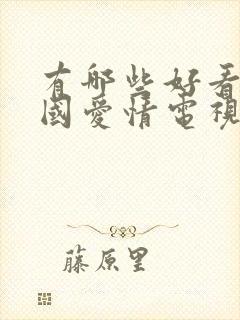 有哪些好看
國愛情電視
藤原里